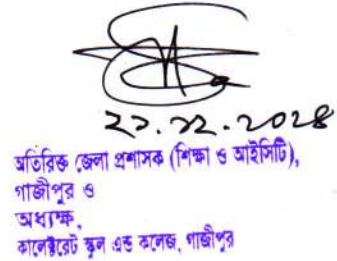 ২১.১২.২০২৪
অতিরিক্ত জেলা প্রশাসক (শিক্ষা ও আইসিটি),
গাজীপুর ও
অধ্যক্ষ,
কালেক্টরেট স্কুল এন্ড কলেজ, গাজীপুর